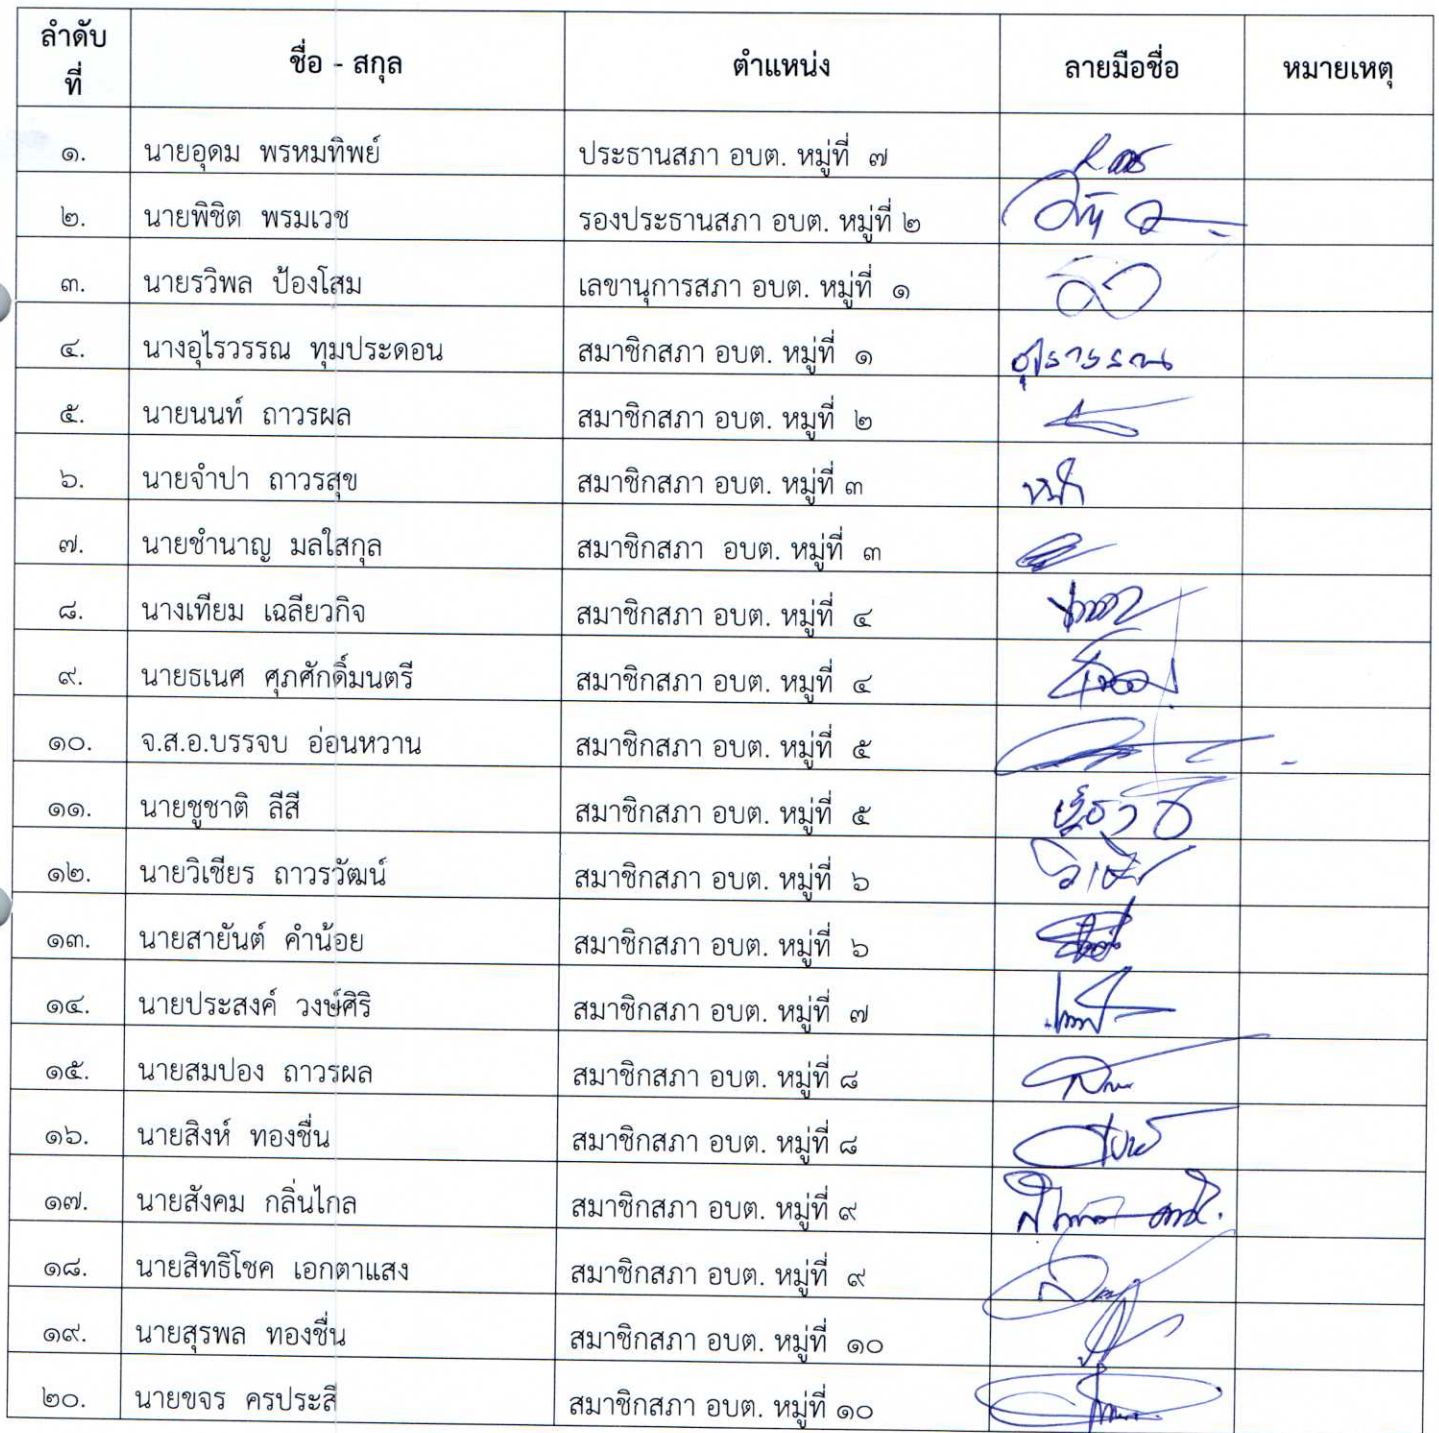 ลำดับที่ ชื่อ - สกุล ตำแหน่ง ลายมือชื่อ หมายเหตุ
๑. นายอุดม พรหมทิพย์ ประธานสภา อบต. หมู่ที่ ๗
๒. นายพิชิต พรมเวช รองประธานสภา อบต. หมู่ที่ ๒
๓. นายรวิพล ป้องโสม เลขานุการสภา อบต. หมู่ที่ ๑
๔. นางอุไรวรรณ ทุมประดอน สมาชิกสภา อบต. หมู่ที่ ๑ อุไรวรรณ
๕. นายนนท์ ถาวรผล สมาชิกสภา อบต. หมู่ที่ ๒
๖. นายจำปา ถาวรสุข สมาชิกสภา อบต. หมู่ที่ ๓
๗. นายชำนาญ มลใสกุล สมาชิกสภา อบต. หมู่ที่ ๓
๘. นางเทียม เฉลียวกิจ สมาชิกสภา อบต. หมู่ที่ ๔
๙. นายธเนศ ศุภศักดิ์มนตรี สมาชิกสภา อบต. หมู่ที่ ๔
๑๐. จ.ส.อ.บรรจบ อ่อนหวาน สมาชิกสภา อบต. หมู่ที่ ๕
๑๑. นายชูชาติ ลีสี สมาชิกสภา อบต. หมู่ที่ ๕
๑๒. นายวิเชียร ถาวรวัฒน์ สมาชิกสภา อบต. หมู่ที่ ๖
๑๓. นายสายันต์ คำน้อย สมาชิกสภา อบต. หมู่ที่ ๖
๑๔. นายประสงค์ วงษ์ศิริ สมาชิกสภา อบต. หมู่ที่ ๗
๑๕. นายสมปอง ถาวรผล สมาชิกสภา อบต. หมู่ที่ ๘
๑๖. นายสิงห์ ทองชื่น สมาชิกสภา อบต. หมู่ที่ ๘
๑๗. นายสังคม กลิ่นไกล สมาชิกสภา อบต. หมู่ที่ ๙
๑๘. นายสิทธิโชค เอกตาแสง สมาชิกสภา อบต. หมู่ที่ ๙
๑๙. นายสุรพล ทองชื่น สมาชิกสภา อบต. หมู่ที่ ๑๐
๒๐. นายขจร ครประสี สมาชิกสภา อบต. หมู่ที่ ๑๐